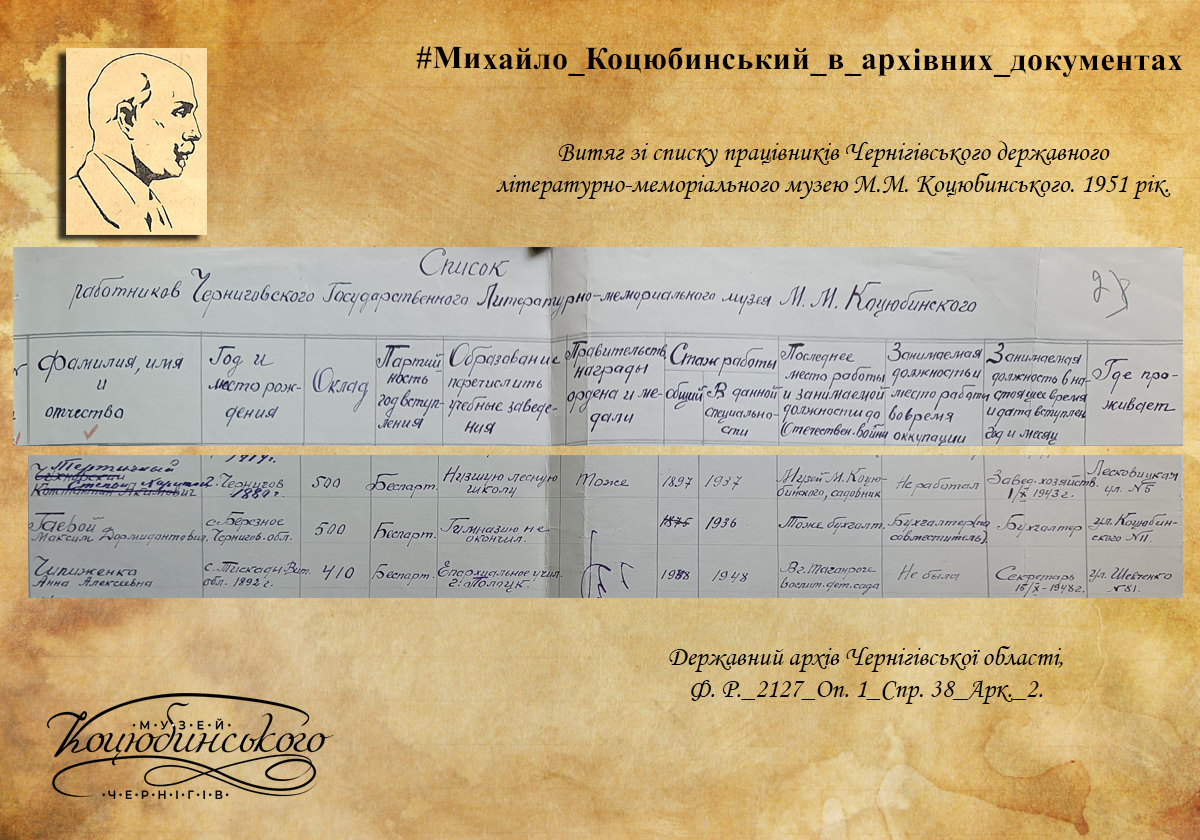 #Михайло_Коцюбинський_в_архівних_документах
Витяг зі списку працівників Чернігівського державного
літературно-меморіального музею М.М. Коцюбинського. 1951 рік.
Список
работников Черниговского Государственного Литературно-мемориального музея М. М. Коцюбинского
Фамилия, имя
и
отчество
Год и
место рож-
дения
Оклад
Партий
ность
год вступ-
ления
Образование
перечислить
учебные заведе-
ния
Правительств.
награды
ордена и ме-
дали
Стаж работы
общий
В данной
специально-
сти
Последнее
место работы
и занимаемой
должности до
Отечествен. войны
Занимаемая
должность и
место работы
вовремя
оккупации
Занимаемая
должность в на-
стоящее время
и дата вступлен
год и месяц
Где про-
живает
г. Чернигов
500
Беспарт.
Низшую лесную
школу
Тоже
1897
1937
Музей М. Коцю-
бинского, садовник
Не работал
Завед. хозяйств.
1/X 1943 г.
Лесковицкая
ул. №5
Гаевой
Максим Дормидонтович
с. Березное
Чернигов. обл.
500
Беспарт.
Гимназию не
окончил.
1936
Тоже бухгалт.
Бухгалтер (по
совместитель)
Бухгалтер
ул. Коцюбин-
ского №11.
Чиженко
Анна Алексеевна
обл. 1892 г.
410
Беспарт.
Епархиальное учил.
г. Полоцк.
1948
В г. Таганроге
воспит. дет. сада
Не была
Секретарь
15/X-1948 г.
ул. Шевченко
№81.
Державний архів Чернігівської області,
Ф. Р._2127_Оп. 1_Спр. 38_Арк._2.
МУЗЕЙ
Коцюбинського
ЧЕРНІГІВ